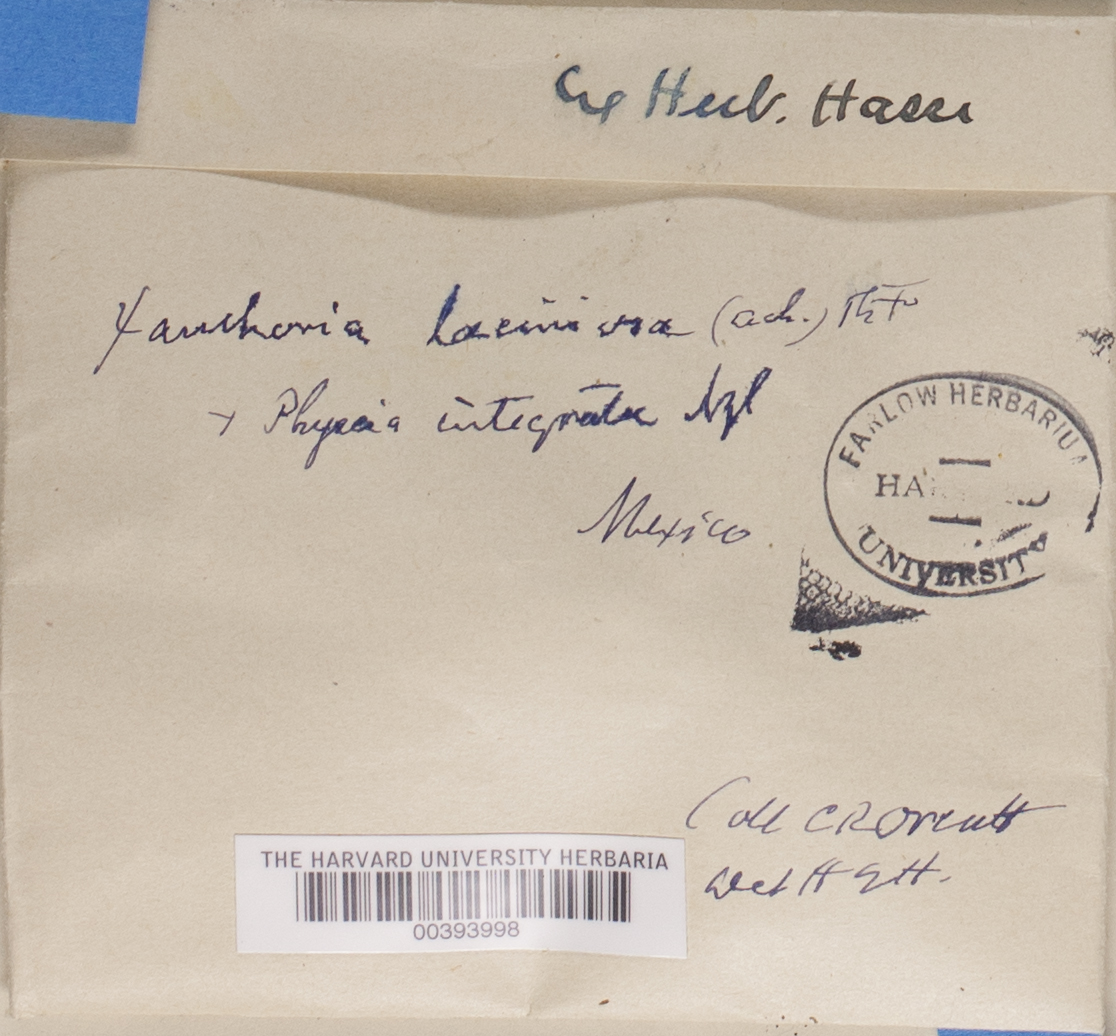 Ex Herb. Hasse
Xanthoria laciniosa (Ach.) Th Fr
+ Physcia integrata Nyl
Mexico
FARLOW HERBARIUM
UNIVERSITY
Coll C R Orcutt
Det H E H.
THE HARVARD UNIVERSITY HERBARIA
00393998